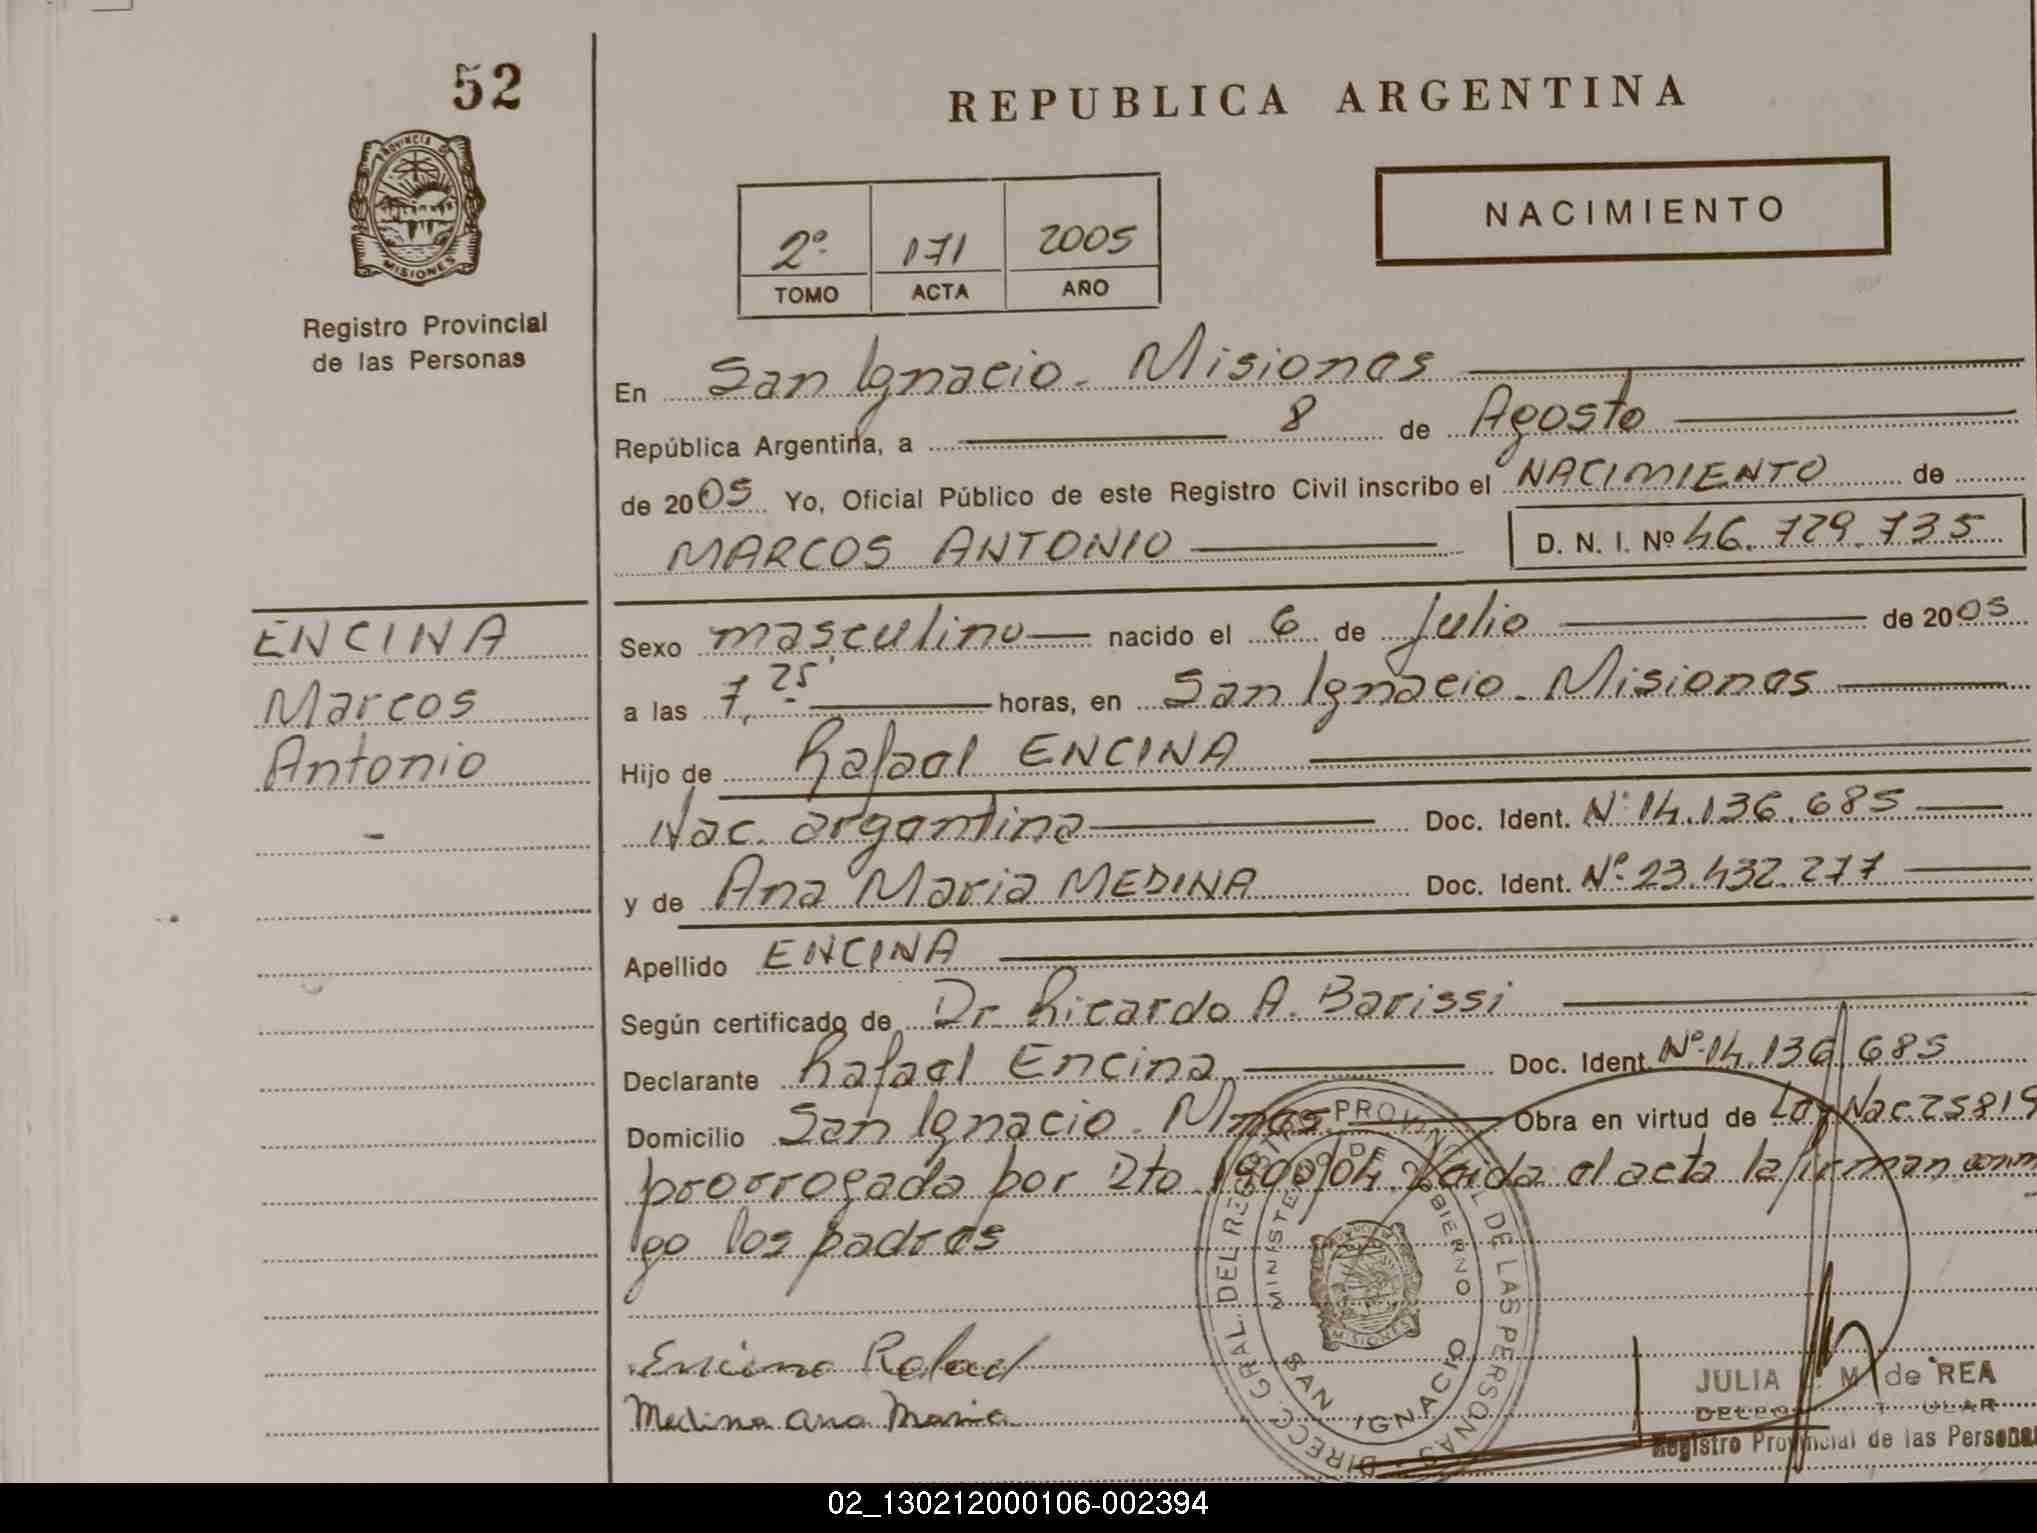 52
REPUBLICA ARGENTINA
PROVINCIA D
MISIONES
Registro Provincial
de las Personas
NACIMIENTO
2º 171 2005
TOMO ACTA AÑO
En San Ignacio - Misiones
República Argentina, a 8 de Agosto
de 2005 Yo, Oficial Público de este Registro Civil inscribo el NACIMIENTO de
MARCOS ANTONIO D. N. I. Nº 46.729.735
ENCINA
Marcos
Antonio
-
Sexo masculino nacido el 6 de Julio de 2005
a las 7,25' horas, en San Ignacio - Misiones
Hijo de Rafael ENCINA
Nac. argentina Doc. Ident. Nº 14.136.685
y de Ana Maria MEDINA Doc. Ident. Nº 23.432.277
Apellido ENCINA
Según certificado de Dr. Ricardo A. Barissi
Declarante Rafael Encina Doc. Ident. Nº 14.136.685
Domicilio San Ignacio - Mnes Obra en virtud de Ley Nac 25819
prorrogada por Dto 1900/04. Leida el acta la firman conmi
go los padres
Encina Rafael
Medina Ana Maria
DIRECC. GRAL. DEL REGISTRO PROVINCIAL DE LAS PERSONAS
MINISTERIO DE GOBIERNO
SAN IGNACIO
MISIONES
JULIA M de REA
Registro Provincial de las Personas
02_130212000106-002394